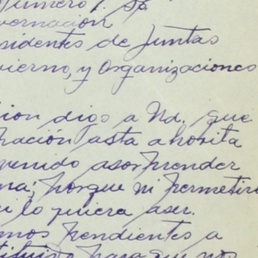 numero 1. Sr
vernación
sidentes de Juntas
vierno, y Organizaciones
ion digo a Ud. que
ración asta ahorita
venido asorprender
na; porque ni permetire
i lo quiera aser.
mos pendientes a
tituido para que nos